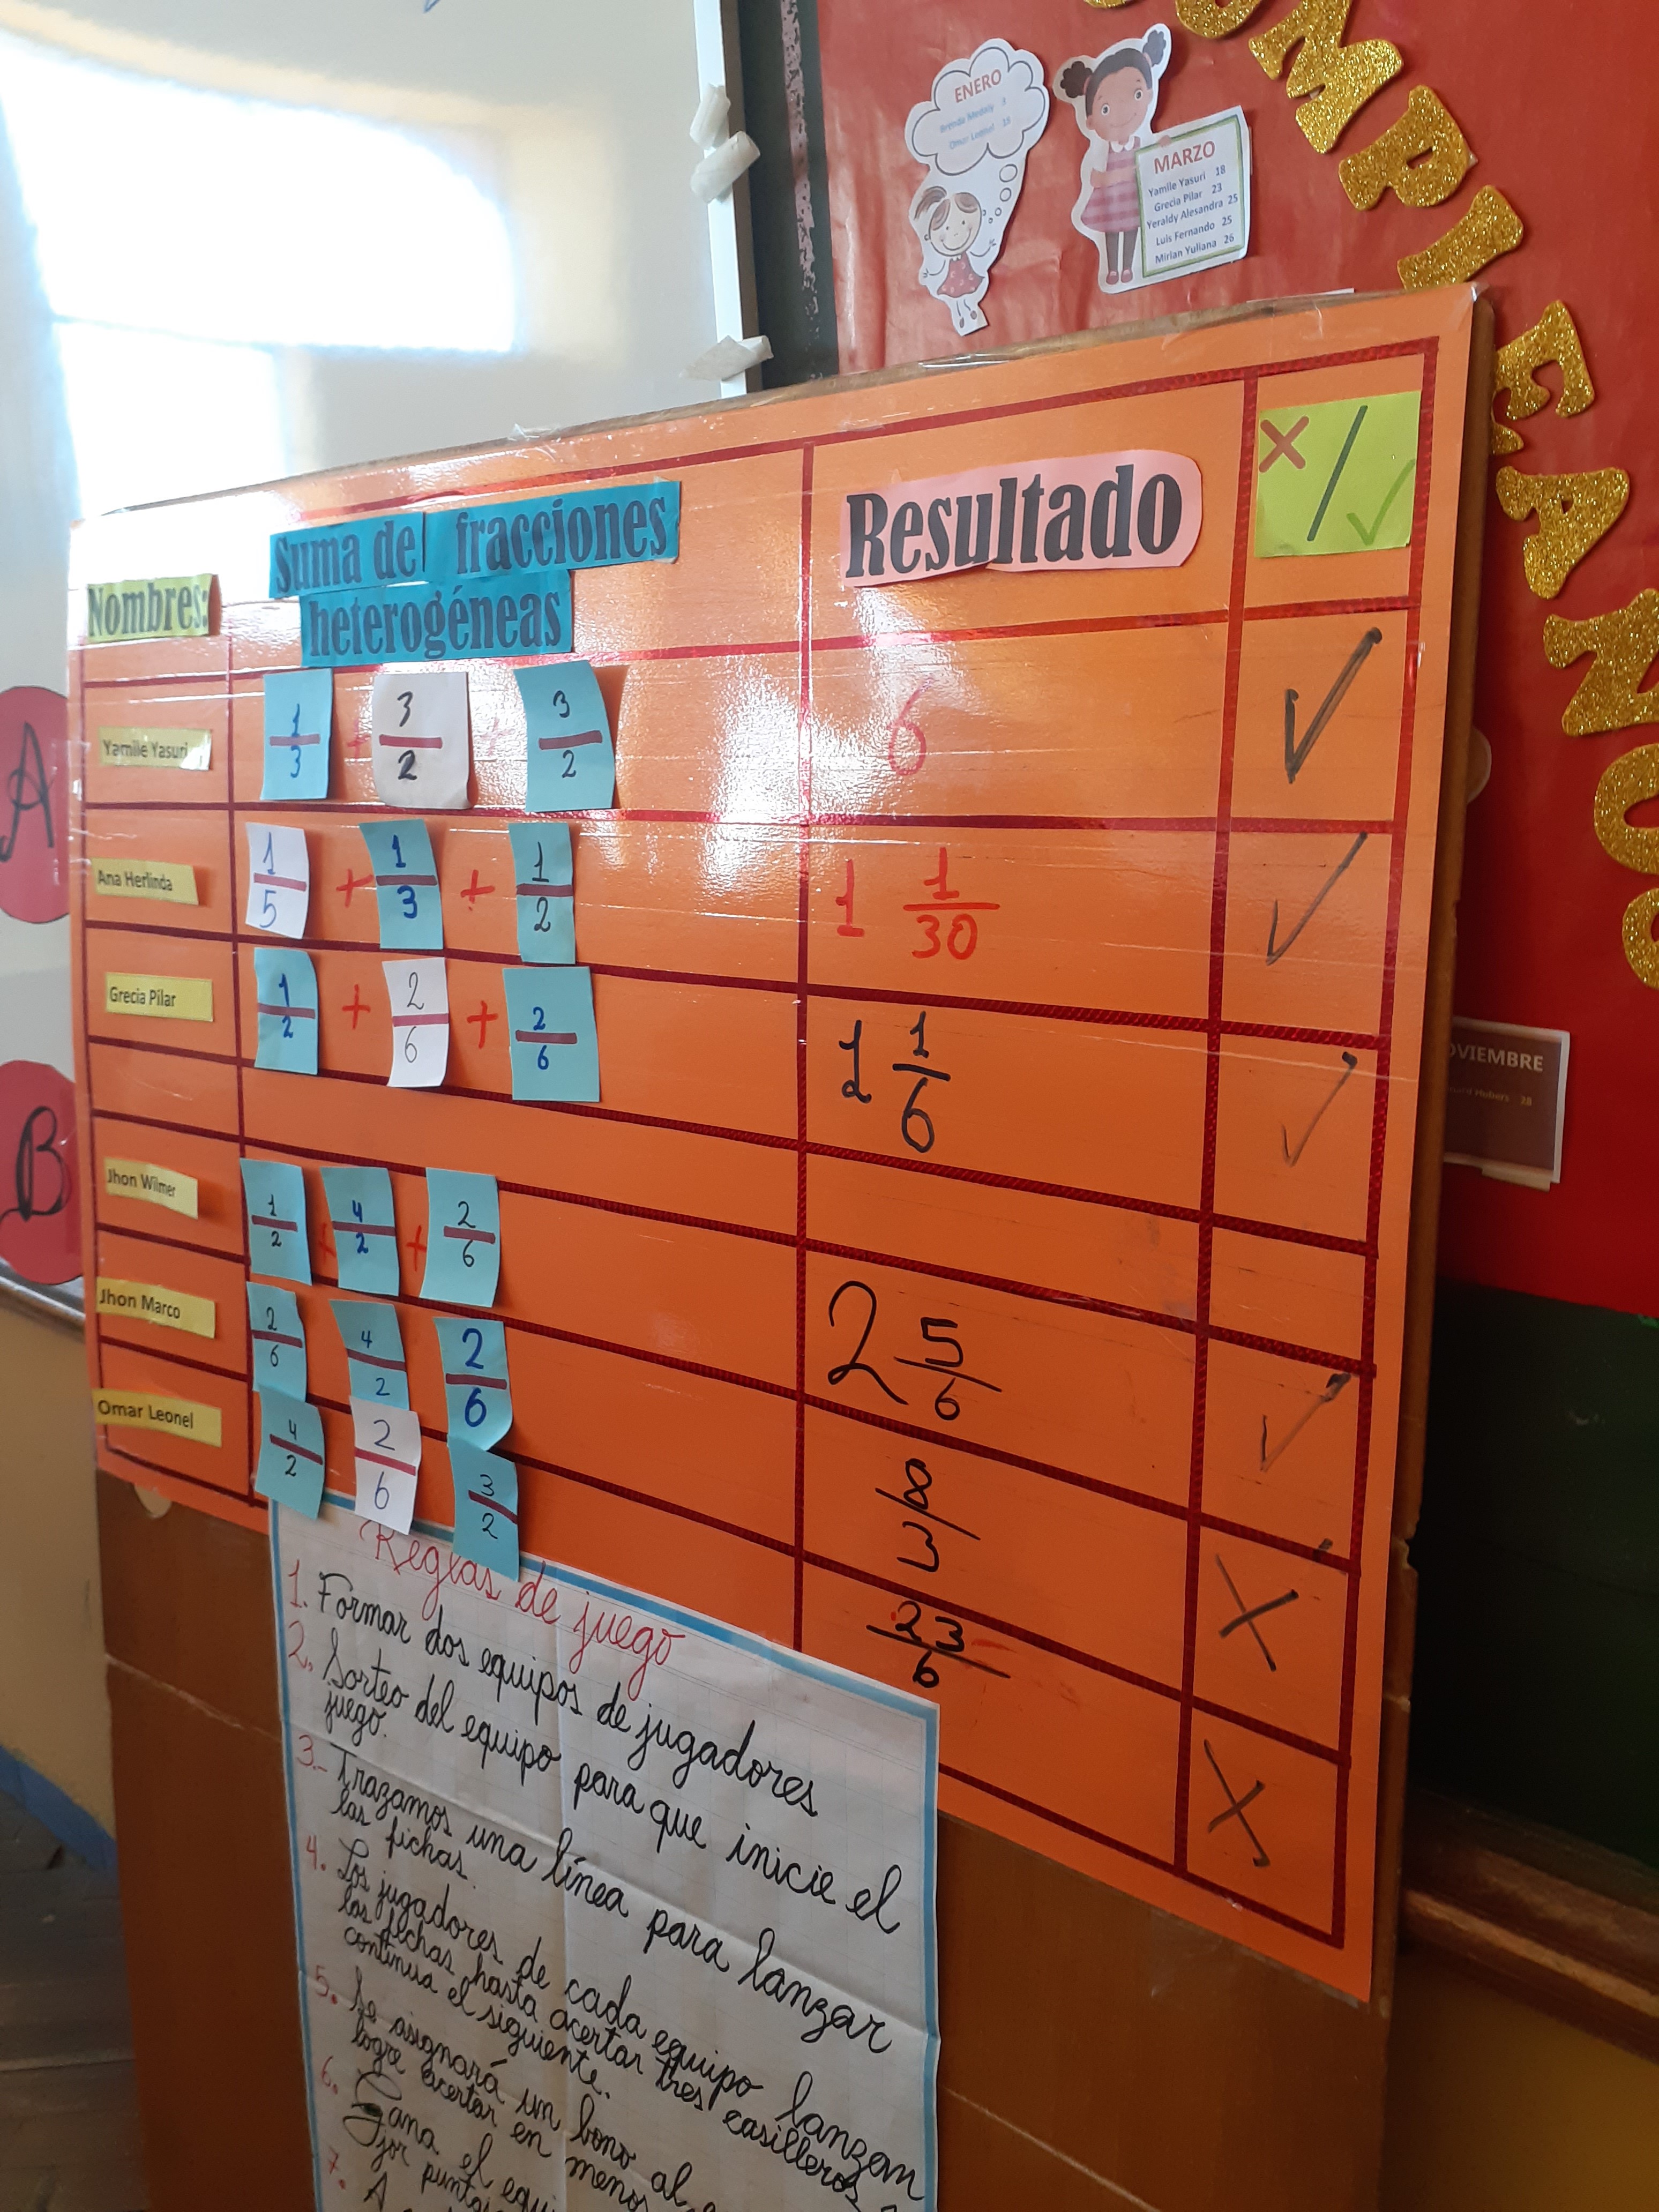 ENERO
Brenda Medaly 3
Omar Leonel 15
MARZO
Yamile Yasuri 18
Grecia Pilar 23
Yeraldy Alesandra 25
Luis Fernando 25
Mirian Yuliana 26
UMPLEAÑOS
A
B
NOVIEMBRE
28
Nombres:
Suma de fracciones
heterogéneas
Resultado
X / ✓
Yamile Yasuri 1/3 + 3/2 + 3/2 6 ✓
Ana Herlinda 1/5 + 1/3 + 1/2 1 1/30 ✓
Grecia Pilar 1/2 + 2/6 + 2/6 1 1/6 ✓
Jhon Wilmer 1/2 + 4/2 + 2/6 2 5/6 ✓
Jhon Marco 2/6 4/2 2/6 8/3 X
Omar Leonel 4/2 2/6 3/2 23/6 X
Reglas de juego
1. Formar dos equipos de jugadores
2. Sorteo del equipo para que inicie el
juego.
3.- Trazamos una línea para lanzar
las fichas.
4. Los jugadores de cada equipo lanzan
las fichas hasta acertar tres casilleros
continua el siguiente.
5. Se asignará un bono al
logre acertar en menos
6. Gana el equi
jor punta
7. A